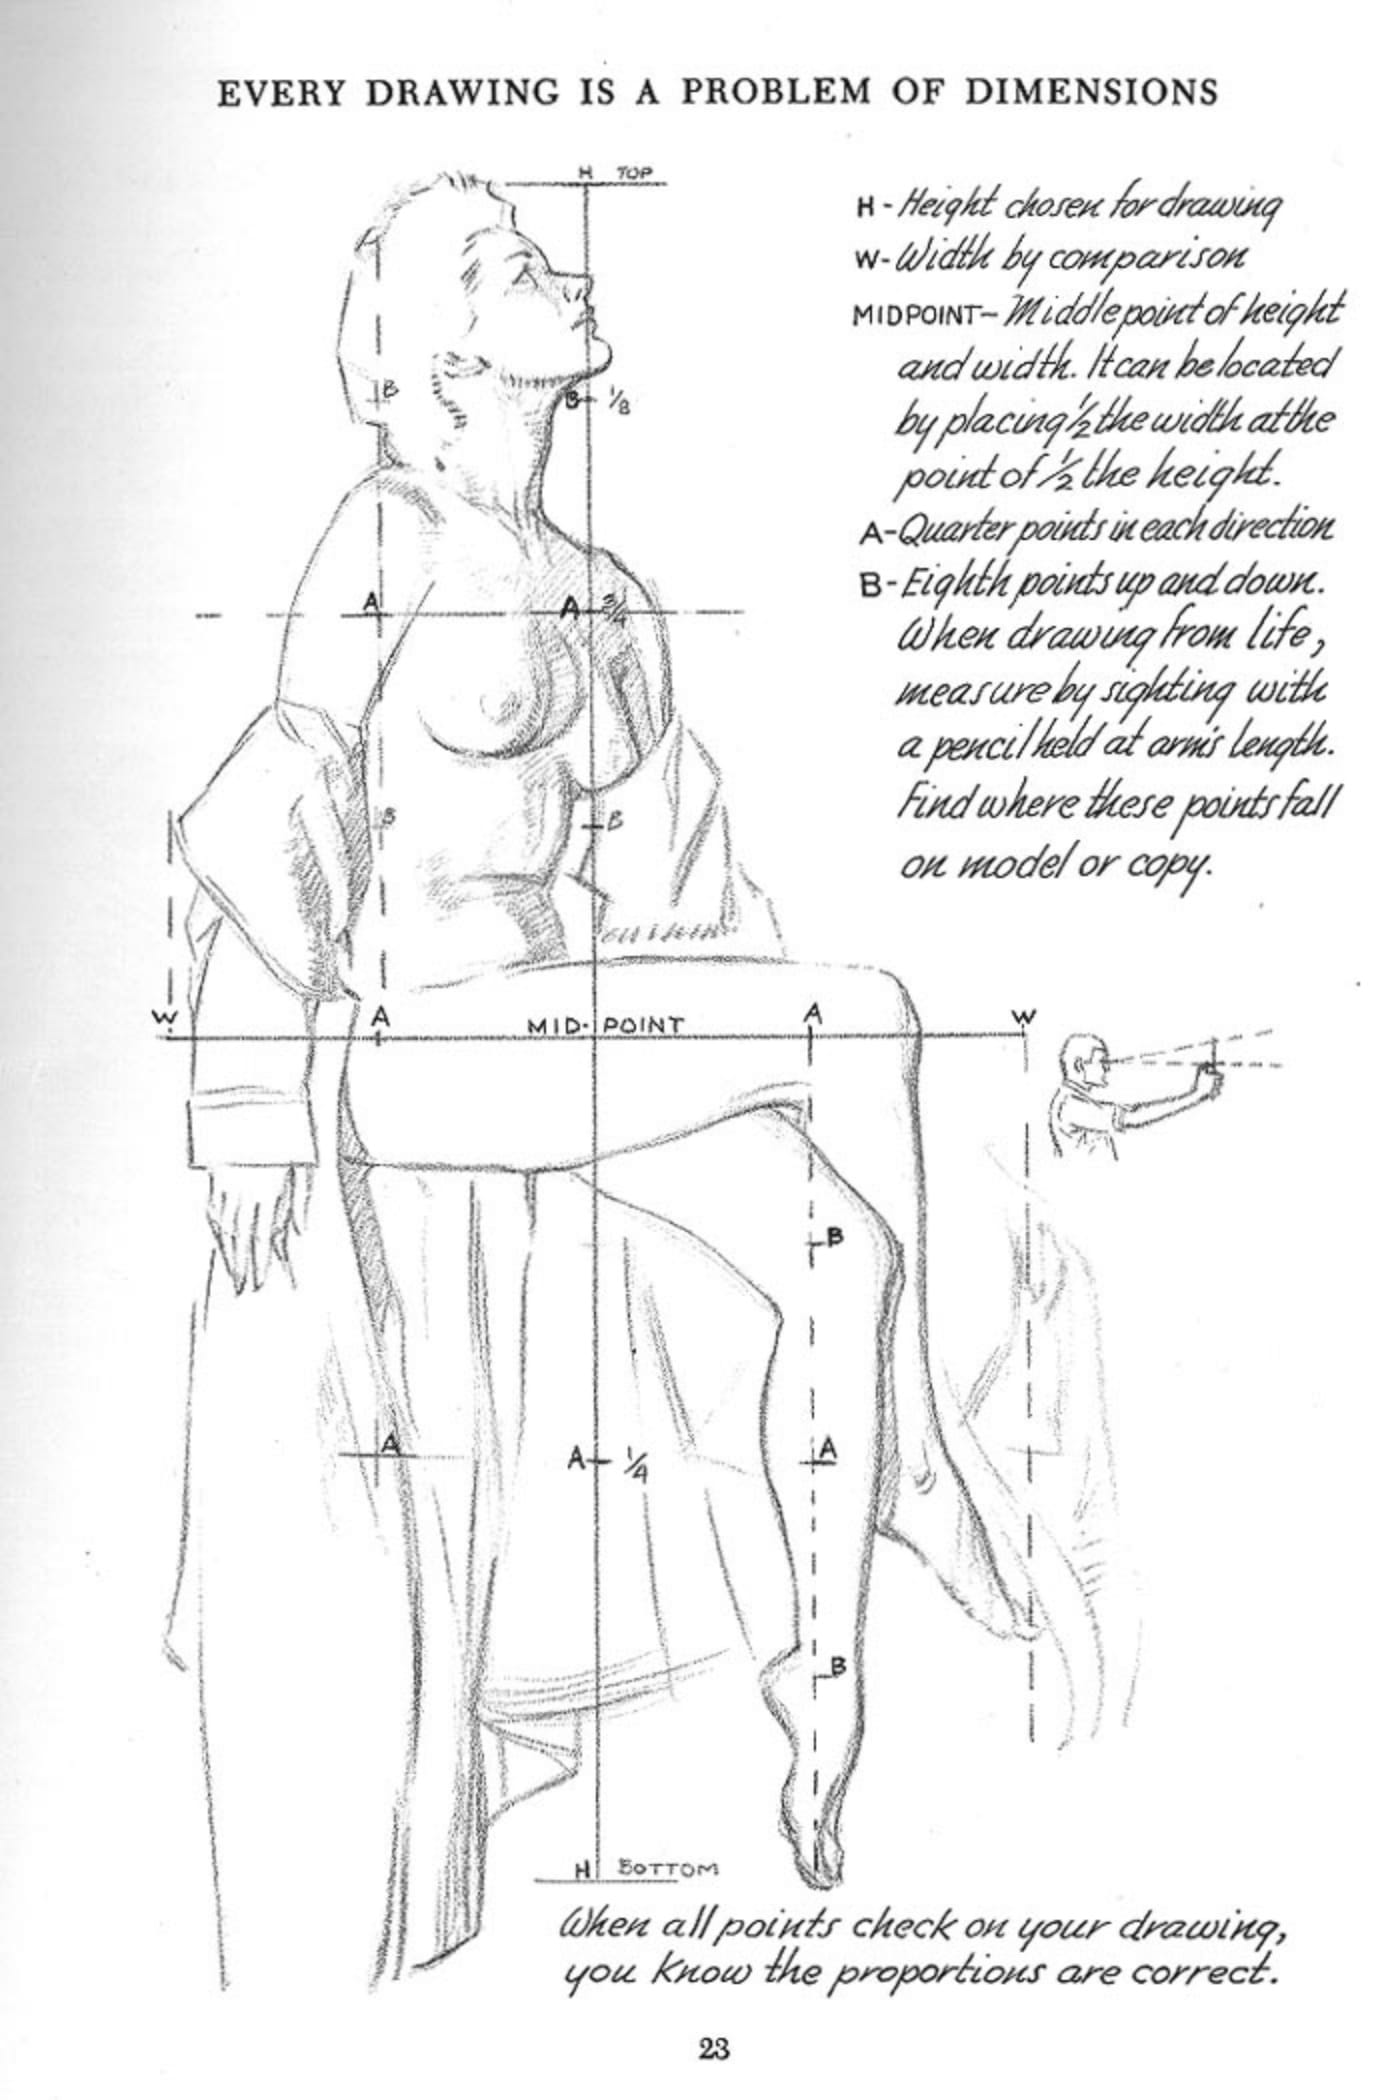 EVERY DRAWING IS A PROBLEM OF DIMENSIONS
H TOP
H - Height chosen for drawing
W - Width by comparison
MIDPOINT - Middle point of height
and width. It can be located
by placing ½ the width at the
point of ½ the height.
A - Quarter points in each direction
B - Eighth points up and down.
When drawing from life,
measure by sighting with
a pencil held at arm's length.
Find where these points fall
on model or copy.
B B ⅛
A A ¾
B B
W A MID-POINT A W
B
A A ¼ A
B
H BOTTOM
When all points check on your drawing,
you know the proportions are correct.
23